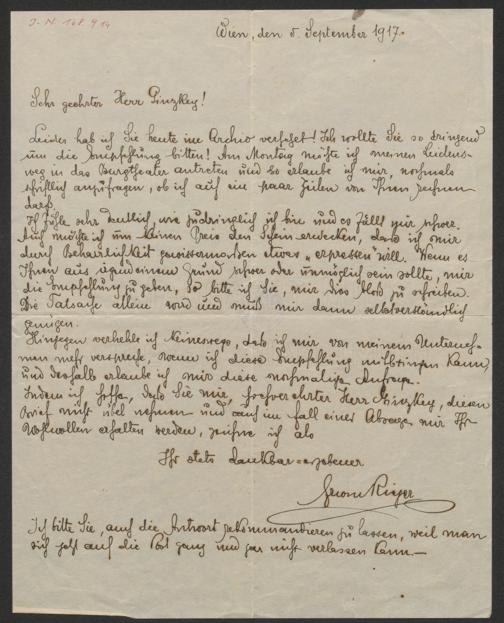 J. N. 168 914
Wien, den 5. September 1917.
Sehr geehrter Herr Ginzkey!
Leider hab ich Sie heute im Archiv verfehlt! Ich wollte Sie so dringend
um die Empfehlung bitten! Am Montag möchte ich meinen Leidens-
weg in das Burgtheater antreten und so erlaube ich mir, nochmals
schriftlich anzufragen, ob ich auf ein paar Zeilen von Ihnen rechnen
darf.
Ich fühle sehr deutlich, wie zudringlich ich bin und es fällt mir schwer.
Auch möchte ich um keinen Preis den Schein erwecken, dass ich mir
durch Beharrlichkeit gewissermassen etwas „erpressen" will. Wenn es
Ihnen aus irgendeinem Grund schwer oder unmöglich sein sollte, mir
die Empfehlung zu geben, so bitte ich Sie, mir dies bloß zu schreiben.
Die Tatsache allein wird und muß mir dann selbstverständlich
genügen.
Hingegen verhehle ich keineswegs, daß ich mir von meinem Unterneh-
men mehr verspreche, wenn ich diese Empfehlung mitbringen kann,
und deshalb erlaube ich mir diese nochmalige Anfrage.
Indem ich hoffe, daß Sie mir, hochverehrter Herr Ginzkey, diesen
Brief nicht übel nehmen und auch im Fall einer Absage mir Ihr
Wohlwollen erhalten werden, zeichne ich als
Ihr stets dankbar-ergebener
Erwin Rieger
Ich bitte Sie, auch die Antwort rekommandieren zu lassen, weil man
sich jetzt auf die Post ganz und gar nicht verlassen kann.—